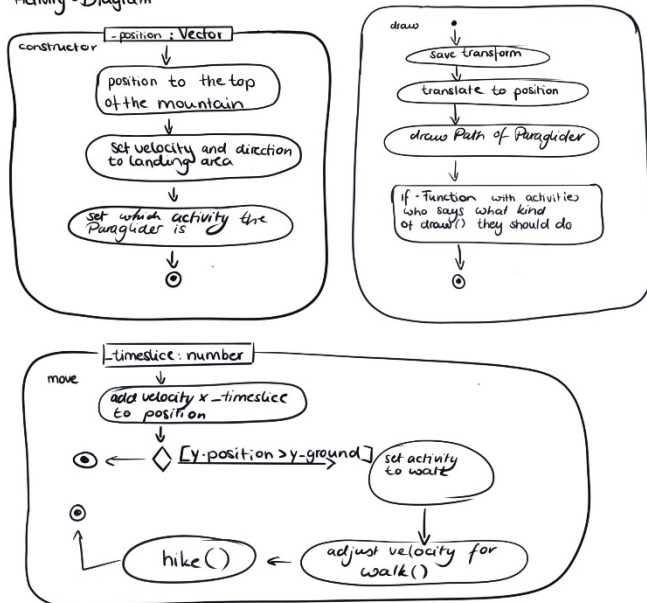 Activity-Diagram
_position : Vector
constructor
position to the top
of the mountain
set velocity and direction
to landing area
set which activity the
Paraglider is
draw
save transform
translate to position
draw Path of Paraglider
if-Function with activities
who says what kind
of draw() they should do
_timeslice: number
move
add velocity x _timeslice
to position
[y-position > y-ground]
set activity
to walk
adjust velocity for
walk()
hike()